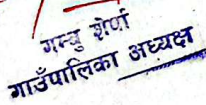 गम्बु शेर्पा
गाउँपालिका अध्यक्ष